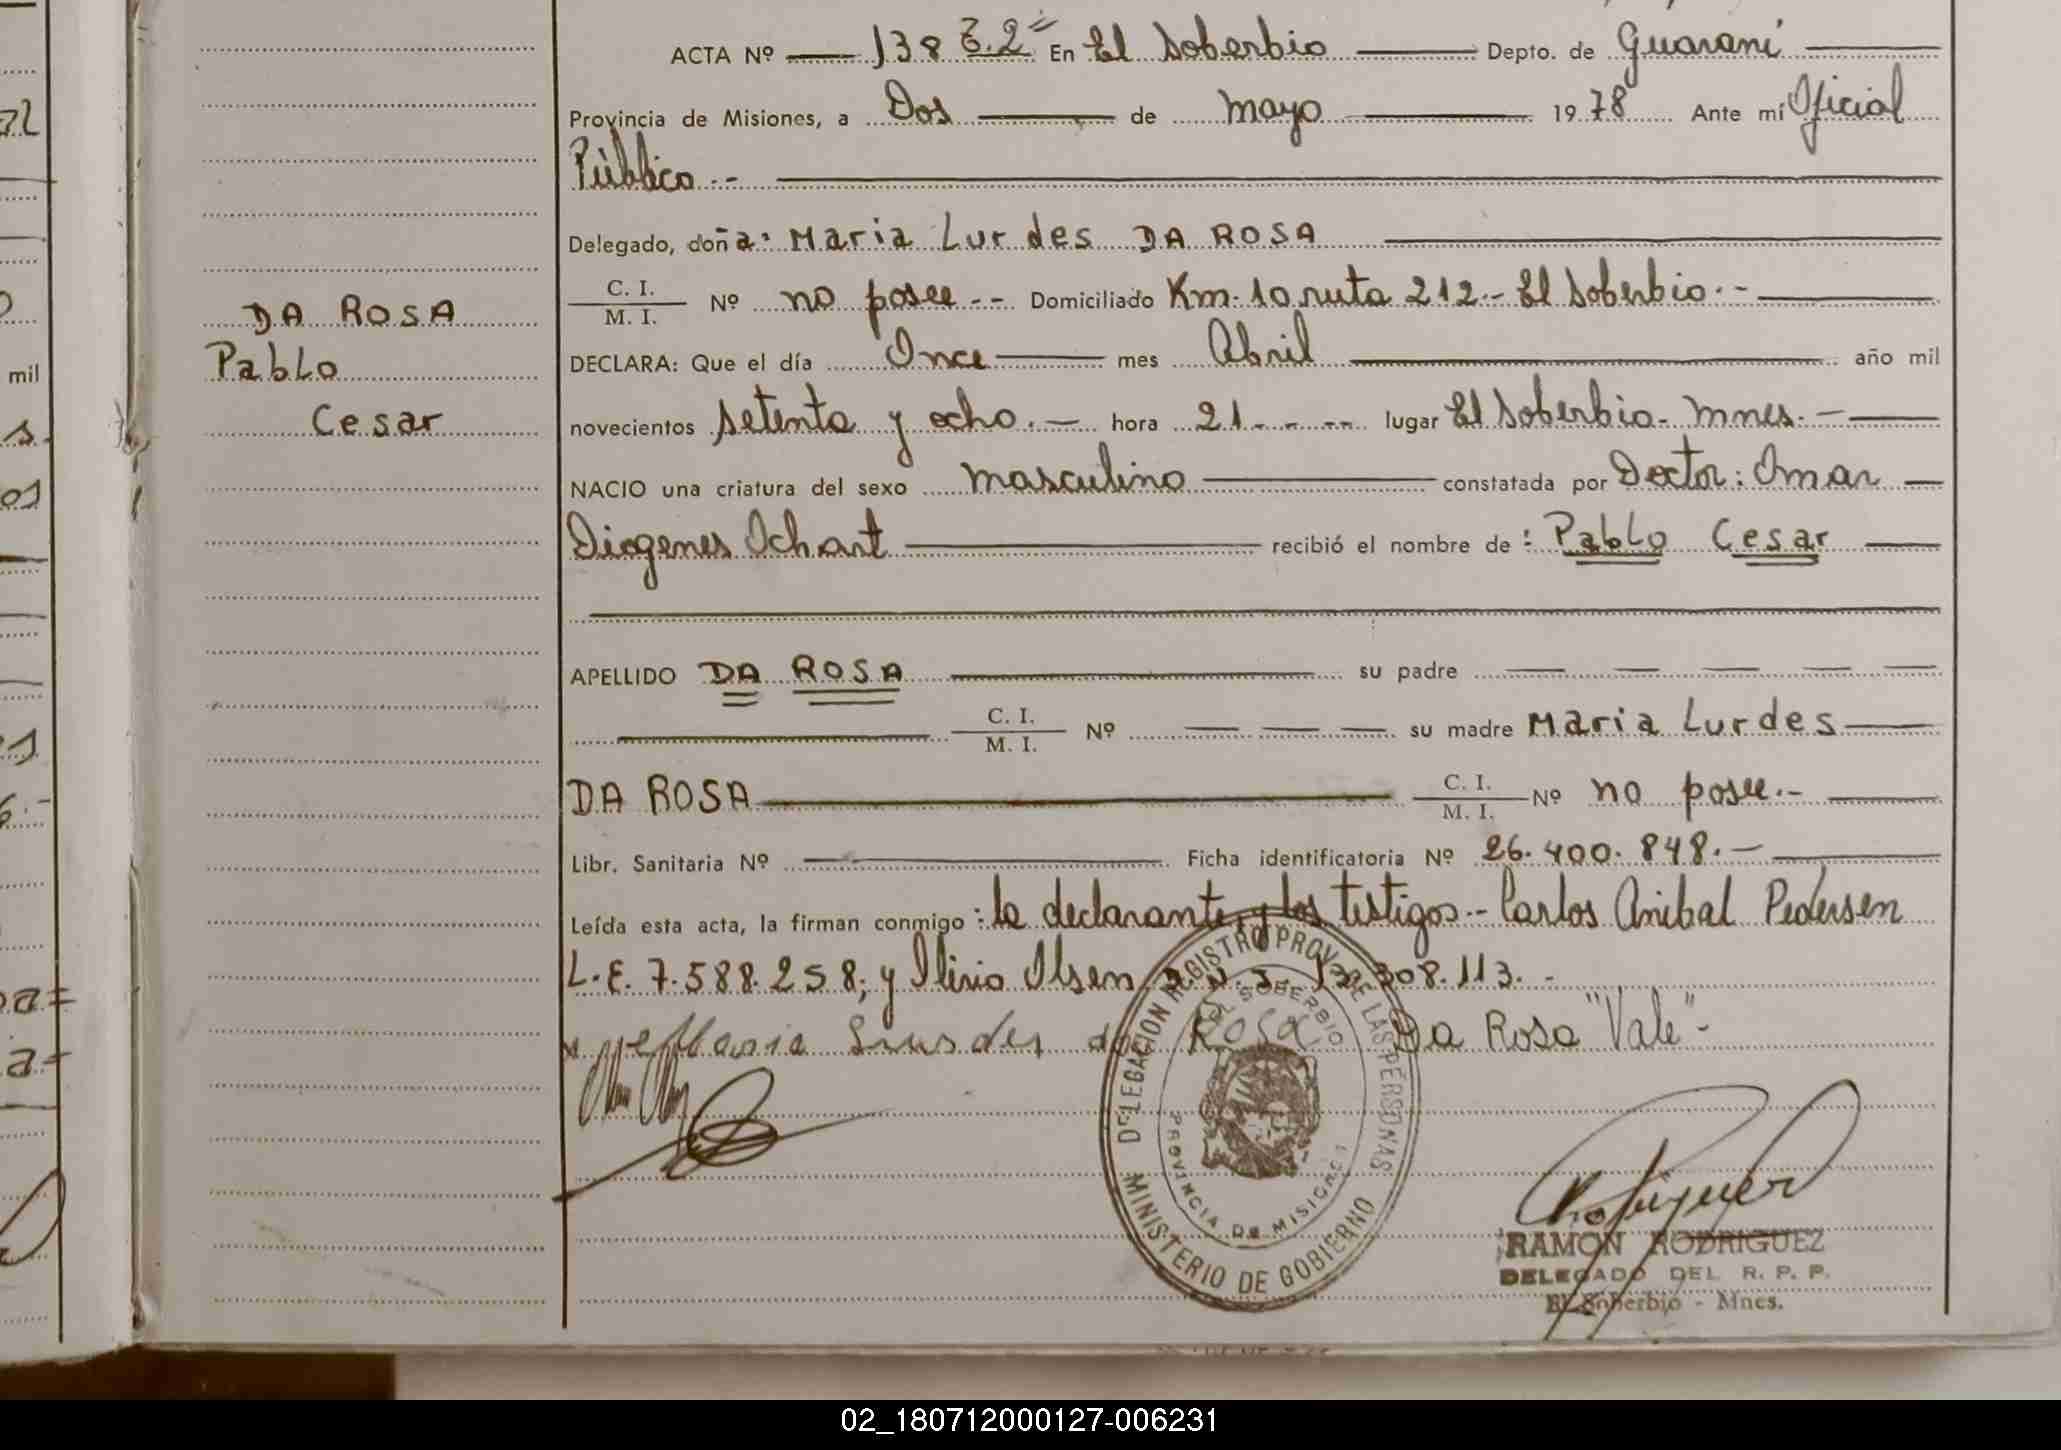 ACTA Nº 138 En El Soberbio Depto. de Guaraní
Provincia de Misiones, a Dos de mayo 1978 Ante mí Oficial
Público.--
Delegado, doña: Maria Lurdes DA ROSA
C. I.
M. I. Nº no posee -- Domiciliado Km. 10 ruta 212.- El Soberbio.-
DA ROSA
DECLARA: Que el día Once mes Abril año mil
Pablo
novecientos setenta y ocho.- hora 21.---- lugar El Soberbio- Mnes.-
Cesar
NACIO una criatura del sexo masculino constatada por Doctor: Omar
Diogenes Ochart recibió el nombre de: Pablo Cesar
APELLIDO DA ROSA su padre
C. I.
M. I. Nº su madre Maria Lurdes
DA ROSA C. I.
M. I. Nº no posee.-
Libr. Sanitaria Nº Ficha identificatoria Nº 26.400.848.-
Leída esta acta, la firman conmigo: la declarante, y los testigos.- Carlos Anibal Pedersen
L.E. 7.588.258; y Olsen 308.113.-
Rosa Da Rosa "Vale"-
DELEGACION REGISTRO PROV. DE LAS PERSONAS
EL SOBERBIO
PROVINCIA DE MISIONES
MINISTERIO DE GOBIERNO
RAMON RODRIGUEZ
DELEGADO DEL R. P. P.
El Soberbio - Mnes.
mil
02_180712000127-006231